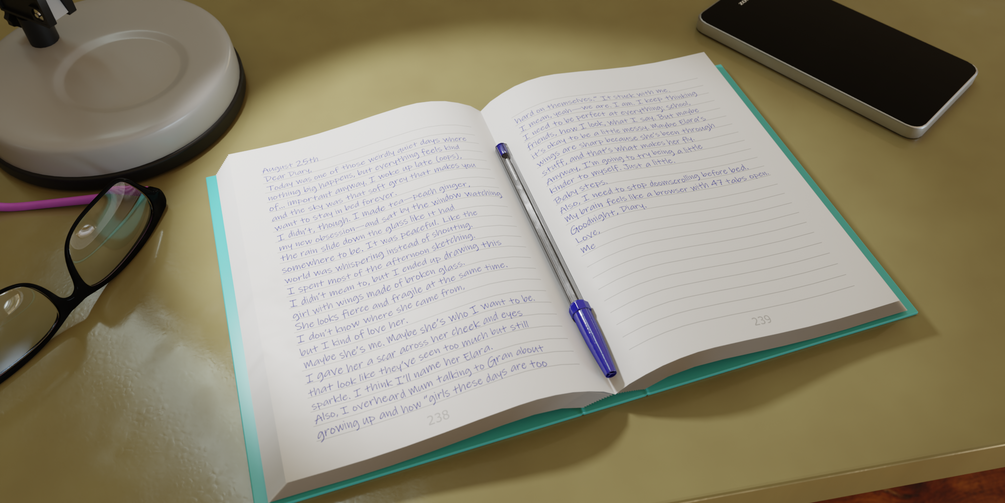 August 25th
Dear Diary,
Today was one of those wordy quiet days where
nothing big happens, but everything feels kind
of... important anyway. I woke up late (oops),
and the sky was that soft grey that makes you
want to stay in bed forever.
I didn't, though. I made tea—peach ginger,
my new obsession—and sat by the window watching
the rain slide down the glass like it had
somewhere to be. It was peaceful. Like the
world was whispering instead of shouting.
I spent most of the afternoon sketching.
I didn't mean to, but I ended up drawing this
girl with wings made of broken glass.
She looks fierce and fragile at the same time.
I don't know where she came from,
but I kind of love her.
Maybe she's me. Maybe she's who I want to be.
I gave her a scar across her cheek and eyes
that look like they've seen too much but still
sparkle. I think I'll name her Elara.
Also, I overheard Mum talking to Gran about
growing up and how "girls these days are too
238
hard on themselves." It stuck with me.
I mean, yeah—we are. I am. I keep thinking
I need to be perfect at everything: school,
friends, how I look, what I say. But maybe
it's okay to be a little messy. Maybe Elara's
wings are sharp because she's been through
stuff, and that's what makes her fly.
Anyway, I'm going to try being a little
kinder to myself. Just a little.
Baby steps.
Also, I need to stop doomscrolling before bed.
My brain feels like a browser with 47 tabs open.
Goodnight, Diary.
Love,
Me
239